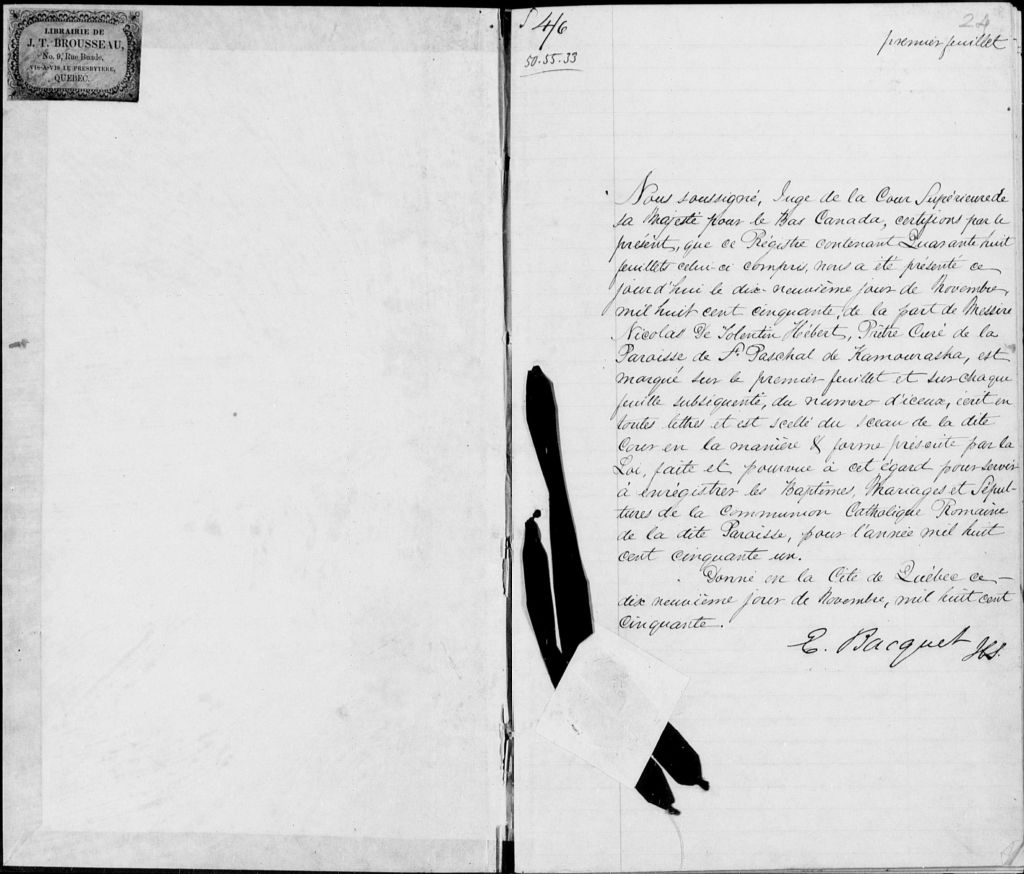 LIBRAIRIE DE
J. T. BROUSSEAU,
No. 9, Rue Buade,
VIS-A-VIS LE PRESBYTERE,
QUEBEC.
4/6
50.55.33
24
premier feuillet
Nous soussigné, Juge de la Cour Supérieure de
sa Majesté pour le Bas Canada, certifions par le
présent, que ce Régistre contenant Quarante huit
feuillets celui-ci compris, nous a été présenté ce
jourd'hui le dix-neuvième jour de Novembre
mil huit cent cinquante, de la part de Messire
Nicolas De Tolentin Hébert, Prêtre Curé de la
Paroisse de St. Paschal de Kamouraska, est
marqué sur le premier feuillet et sur chaque
feuille subséquente, du numero d'iceux, écrit en
toutes lettres et est scellé du sceau de la dite
Cour en la manière & forme préscrite par la
Loi, faite et pourvue à cet égard pour servir
à enrégistrer les Baptêmes, Mariages et Sépul-
tures de la Communion Catholique Romaine
de la dite Paroisse, pour l'année mil huit
cent cinquante un.
Donné en la Cité de Québec ce
dix neuvième jour de Novembre, mil huit cent
Cinquante.
E. Bacquet